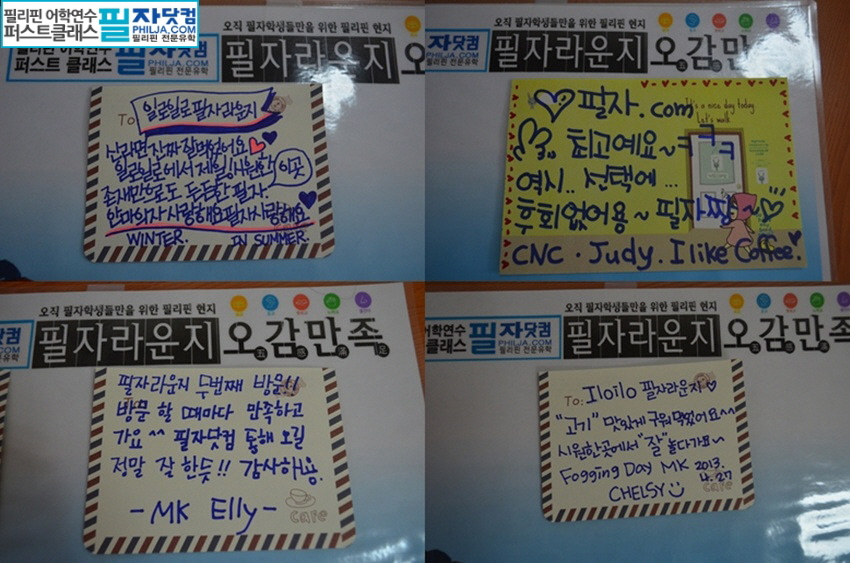 필리핀 어학연수
퍼스트클래스
필자닷컴
PHILJA.COM
필리핀 전문유학
오직 필자학생들만을 위한 필리핀 현지
퍼스트 클래스
필자닷컴
PHILJA.COM
필리핀 전문유학
필자라운지 오
To 일로일로 필자라운지
신라면 진짜 잘먹었어요
일로일로에서 제일 시원한 이곳
존재만으로도 든든한 필자
안마의자 사랑해요 필자 사랑해요
WINTER. IN SUMMER.
오직 필자학생들만을 위한 필리핀 현지
자닷컴
PHILJA.COM
필리핀 전문유학
필자라운지 오감만
필자.com
It's a nice day today
Let's walk
최고예요~ㅋㅋㅋ
역시.. 선택에...
후회없어용~ 필자짱~
CNC. Judy. I like Coffee.
오직 필자학생들만을 위한 필리핀 현지
닷컴
JA.COM
전문유학
필자라운지 오감만족
필자라운지 두번째 방문!!
방문 할 때마다 만족하고
가요^^ 필자닷컴 통해 오길
정말 잘 한듯!! 감사해용.
- MK Elly -
cafe
오직 필자학생들만을 위한 필리핀 현지
어학연수
클래스
필자닷컴
PHILJA.COM
필리핀 전문유학
필자라운지 오감만족
To: Iloilo 필자라운지♡
"고기" 맛있게 구워먹었어요^^
시원한곳에서 "잘" 놀다가요~
Fogging Day MK 2013.
4.27
CHELSY
cafe